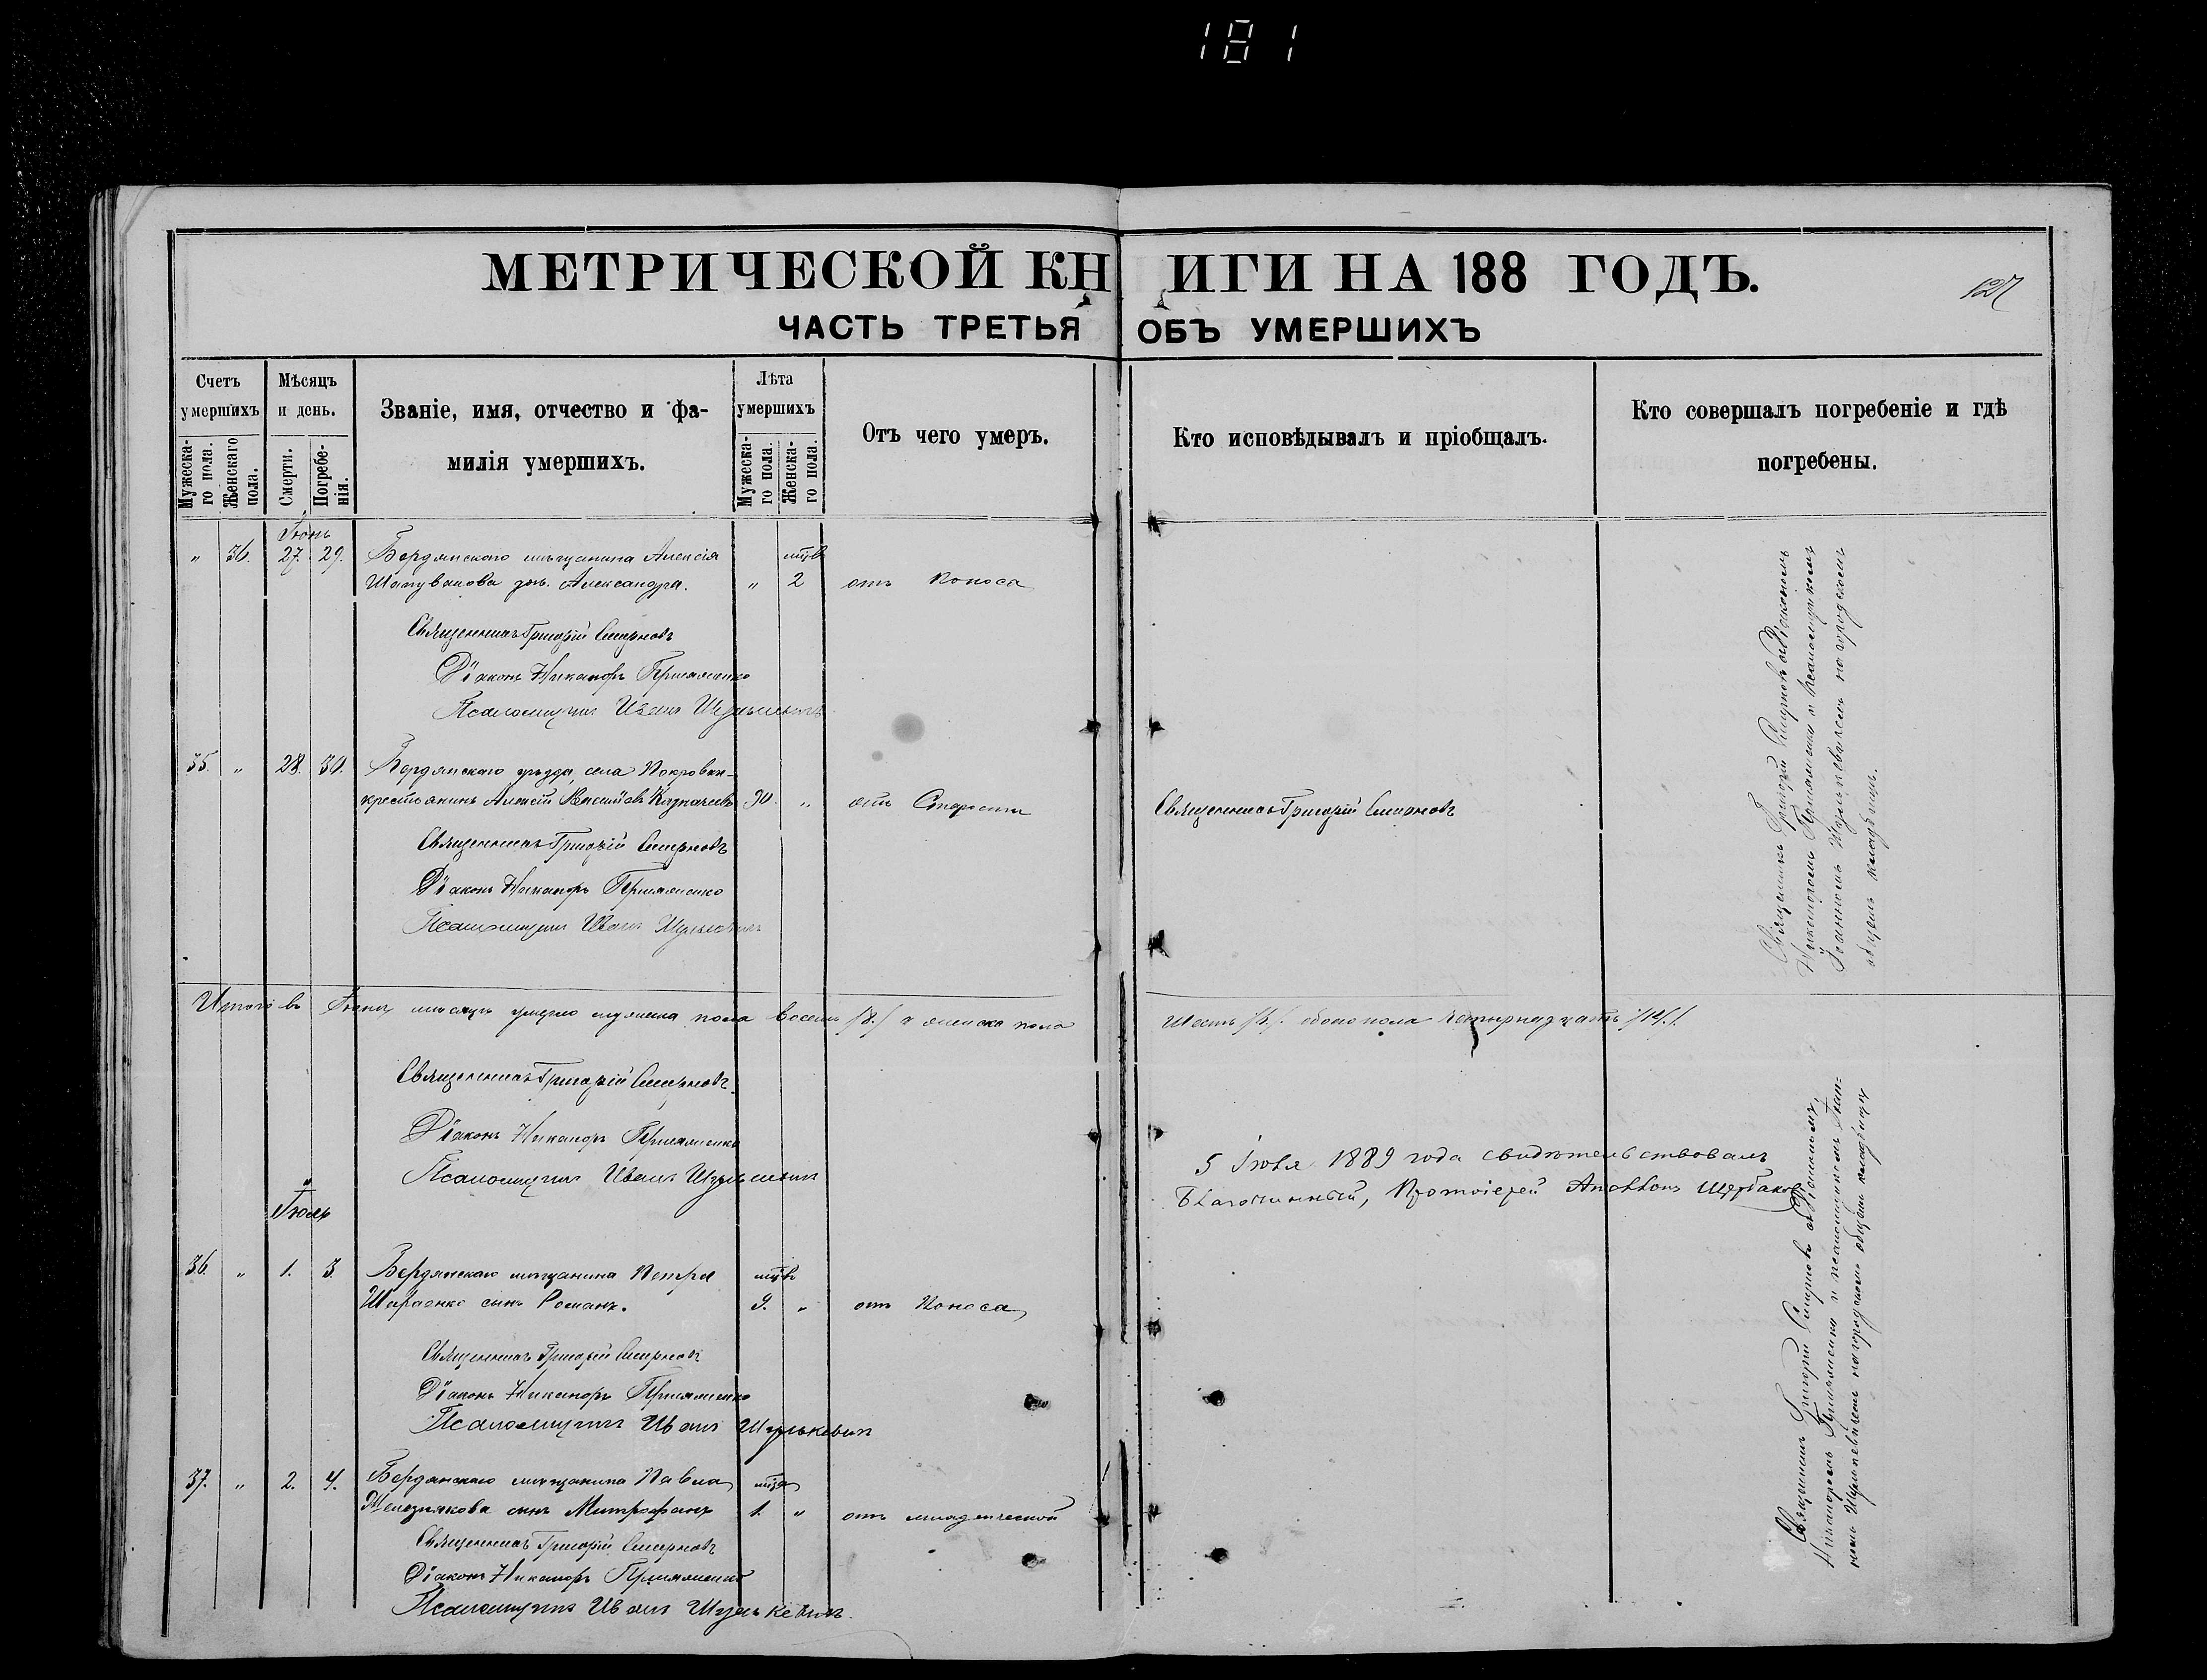 181
МЕТРИЧЕСКОЙ КНИГИ НА 188 ГОДЪ.
127
ЧАСТЬ ТРЕТЬЯ ОБЪ УМЕРШИХЪ
Счетъ умершихъ
Мужеска-го пола.
Женскаго пола.
Мѣсяцъ и день.
Смерти.
Погребе-нія.
Званіе, имя, отчество и фа-
милія умершихъ.
Лѣта умершихъ
Мужеска-го пола.
Женска-го пола.
Отъ чего умеръ.
Кто исповѣдывалъ и пріобщалъ.
Кто совершалъ погребеніе и гдѣ
погребены.
Іюнь
„ 36. 27. 29. Бердянскаго мѣщанина Алексія
дочь Александра. „ 2 отъ поноса
Священникъ Григорій Смирновъ
Діаконъ Никаноръ
Псаломщикъ Иванъ Шулькевичъ
35. „ 28. 30. Бердянскаго уѣзда, села Покровки
крестьянинъ Алексій Казначеевъ 90. „ отъ Старости
Священникъ Григорій Смирновъ
Священникъ Григорій Смирновъ
Діаконъ Никаноръ
Псаломщикъ Иванъ Шулькевичъ
Священникъ Григорій Смирновъ съ Діакономъ
Никаноромъ и псаломщикомъ
Іоанномъ Шулькевичемъ на городскомъ
общемъ кладбищѣ.
Итого въ Іюнѣ мѣсяцѣ умерло мужеска пола восемь /8./ и женска пола
Шесть /6./. обоего пола четырнадцать /14/.
Священникъ Григорій Смирновъ.
Діаконъ Никаноръ
Псаломщикъ Иванъ Шулькевичъ
5 Іюля 1889 года свидѣтельствовалъ
Благочинный, Протоіерей Щербаковъ
Іюль
36. „ 1. 3. Бердянскаго мѣщанина Петра
сынъ Романъ. 9. „ отъ поноса
Священникъ Григорій Смирновъ
Діаконъ Никаноръ
Псаломщикъ Иванъ Шулькевичъ
37. „ 2. 4. Бердянскаго мѣщанина Павла
Железнякова сынъ Митрофанъ 1. „ отъ младенческой
Священникъ Григорій Смирновъ
Діаконъ Никаноръ
Псаломщикъ Иванъ Шулькевичъ.
Священникъ Григорій Смирновъ съ Діакономъ
Никаноромъ и псаломщикомъ Іоан-
номъ Шулькевичемъ на городскомъ общемъ кладбищѣ